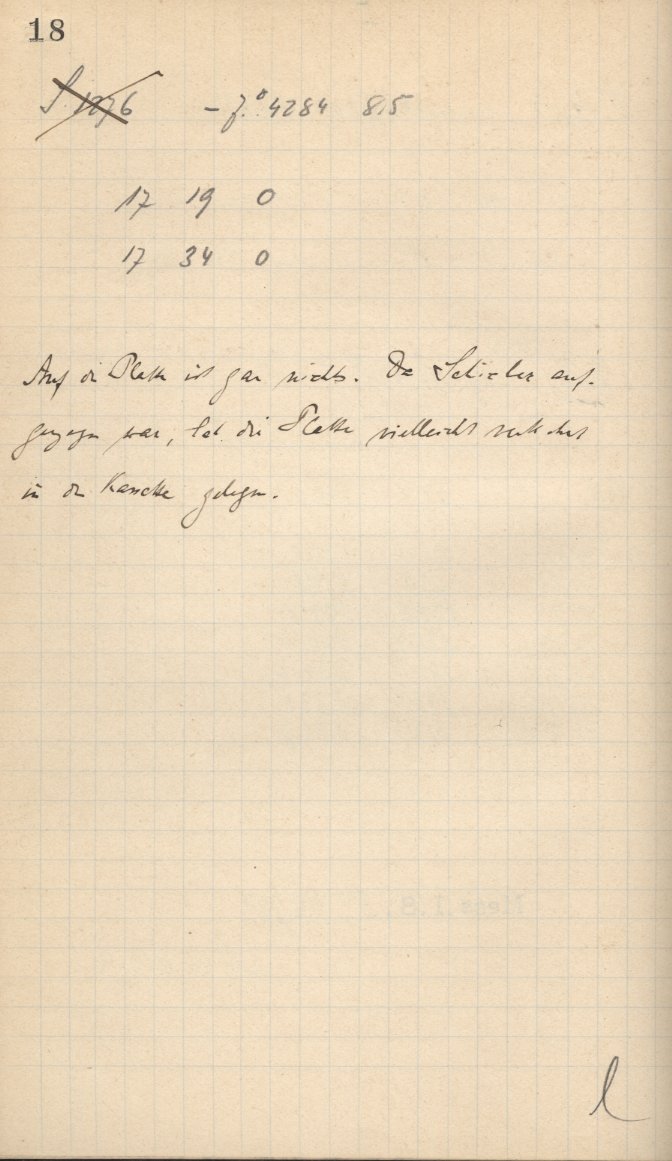 18
S 1276 – 7.° 4284 8.5
17 19 0
17 34 0
Auf der Platte ist gar nichts. Da Schieber auf-
gezogen war, hat die Platte vielleicht verkehrt
in der Kassette gelegen.
l